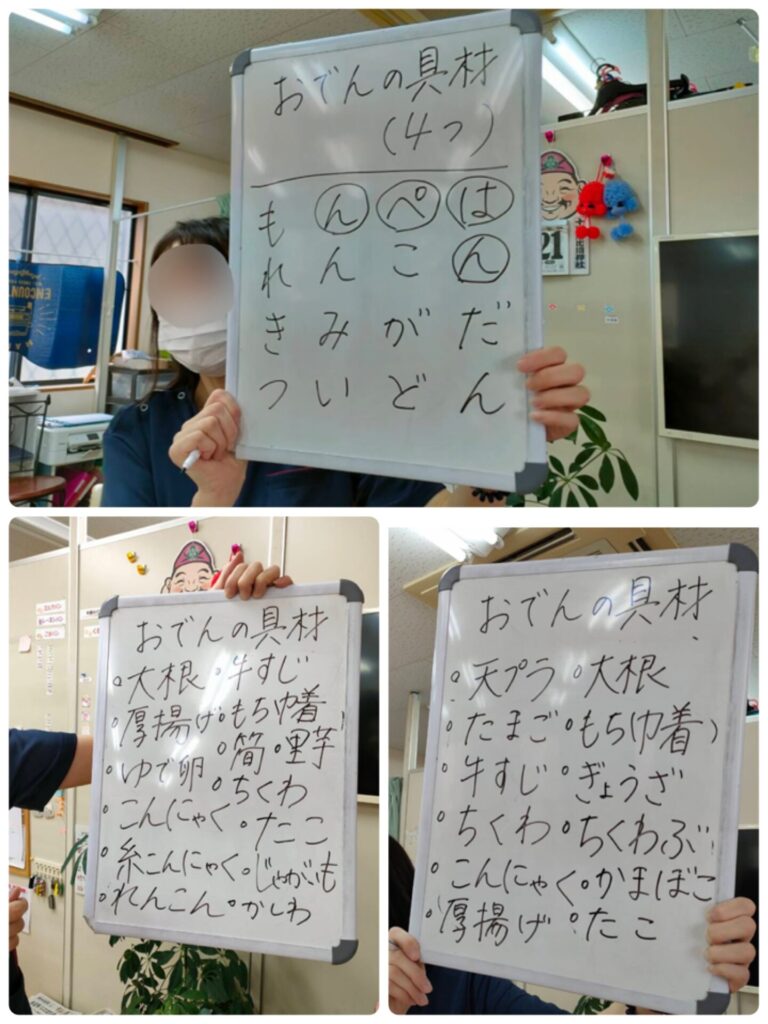 おでんの具材
(4つ)
も ん ぺ は
れ ん こ ん
き み が だ
つ い ど ん
21
ENCOUNT
おでんの具材
。大根 。牛すじ
。厚揚げ 。もち巾着
。ゆで卵 。筒 。里芋
。こんにゃく 。ちくわ
。糸こんにゃく 。たこ
。れんこん 。じゃがいも
。かしわ
おでんの具材
。天プラ 。大根
。たまご 。もち巾着)
。牛すじ 。ぎょうざ
。ちくわ 。ちくわぶ
。こんにゃく 。かまぼこ
。厚揚げ 。たこ